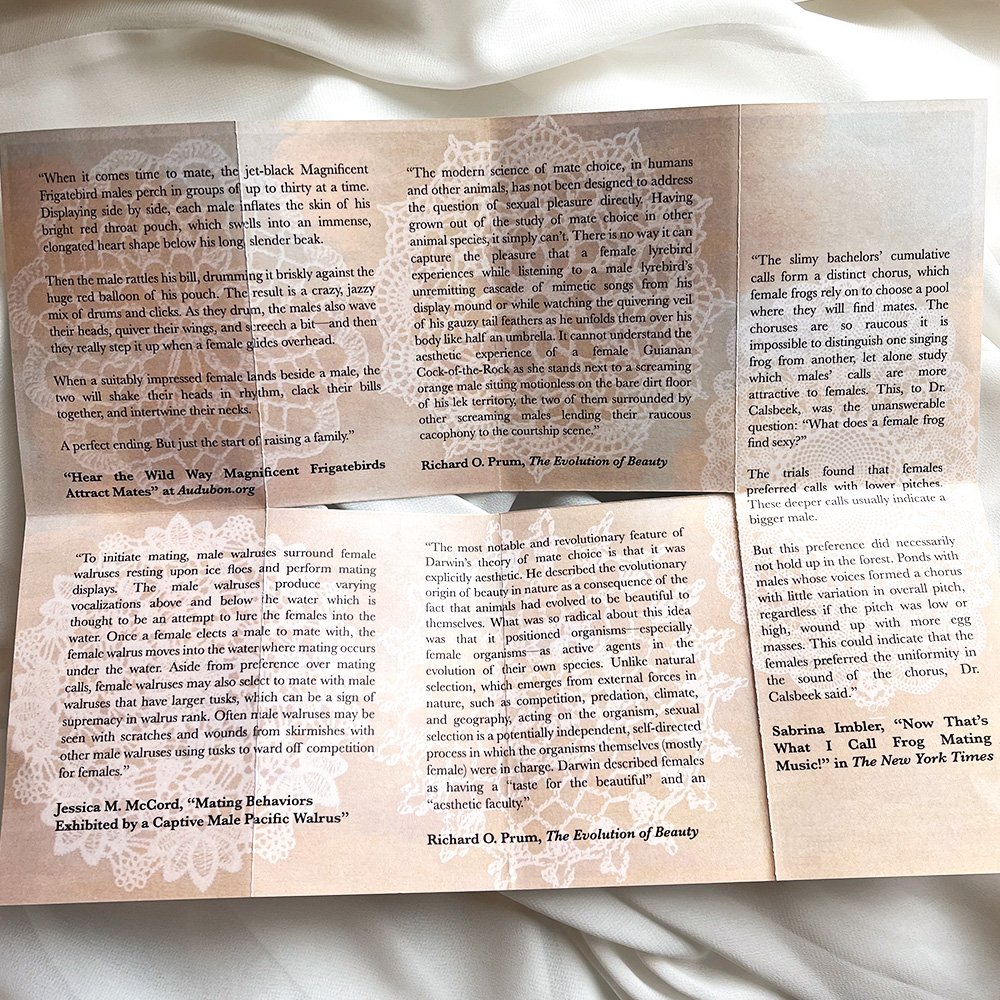 “When it comes time to mate, the jet-black Magnificent
Frigatebird males perch in groups of up to thirty at a time.
Displaying side by side, each male inflates the skin of his
bright red throat pouch, which swells into an immense,
elongated heart shape below his long, slender beak.
Then the male rattles his bill, drumming it briskly against the
huge red balloon of his pouch. The result is a crazy, jazzy
mix of drums and clicks. As they drum, the males also wave
their heads, quiver their wings, and screech a bit—and then
they really step it up when a female glides overhead.
When a suitably impressed female lands beside a male, the
two will shake their heads in rhythm, clack their bills
together, and intertwine their necks.
A perfect ending. But just the start of raising a family.”
“Hear the Wild Way Magnificent Frigatebirds
Attract Mates” at Audubon.org
“The modern science of mate choice, in humans
and other animals, has not been designed to address
the question of sexual pleasure directly. Having
grown out of the study of mate choice in other
animal species, it simply can’t. There is no way it can
capture the pleasure that a female lyrebird
experiences while listening to a male lyrebird’s
unremitting cascade of mimetic songs from his
display mound or while watching the quivering veil
of his gauzy tail feathers as he unfolds them over his
body like half an umbrella. It cannot understand the
aesthetic experience of a female Guianan
Cock-of-the-Rock as she stands next to a screaming
orange male siting motionless on the bare dirt floor
of his lek territory, the two of them surrounded by
other screaming males lending their raucous
cacophony to the courtship scene.”
Richard O. Prum, The Evolution of Beauty
“To initiate mating, male walruses surround female
walruses resting upon ice floes and perform mating
displays. The male walruses produce varying
vocalizations above and below the water which is
thought to be an attempt to lure the females into the
water. Once a female elects a male to mate with, the
female walrus moves into the water where mating occurs
under the water. Aside from preference over mating
calls, female walruses may also select to mate with male
walruses that have larger tusks, which can be a sign of
supremacy in walrus rank. Often male walruses may be
seen with scratches and wounds from skirmishes with
other male walruses using tusks to ward off competition
for females.”
Jessica M. McCord, “Mating Behaviors
Exhibited by a Captive Male Pacific Walrus”
“The most notable and revolutionary feature of
Darwin’s theory of mate choice is that it was
explicitly aesthetic. He described the evolutionary
origin of beauty in nature as a consequence of the
fact that animals had evolved to be beautiful to
themselves. What was so radical about this idea
was that it positioned organisms—especially
female organisms—as active agents in the
evolution of their own species. Unlike natural
selection, which emerges from external forces in
nature, such as competition, predation, climate,
and geography, acting on the organism, sexual
selection is a potentially independent, self-directed
process in which the organisms themselves (mostly
female) were in charge. Darwin described females
as having a “taste for the beautiful” and an
“aesthetic faculty.”
Richard O. Prum, The Evolution of Beauty
“The slimy bachelors’ cumulative
calls form a distinct chorus, which
female frogs rely on to choose a pool
where they will find mates. The
choruses are so raucous it is
impossible to distinguish one singing
frog from another, let alone study
which males’ calls are more
attractive to females. This, to Dr.
Calsbeek, was the unanswerable
question: “What does a female frog
find sexy?”
The trials found that females
preferred calls with lower pitches.
These deeper calls usually indicate a
bigger male.
But this preference did necessarily
not hold up in the forest. Ponds with
males whose voices formed a chorus
with little variation in overall pitch,
regardless if the pitch was low or
high, wound up with more egg
masses. This could indicate that the
females preferred the uniformity in
the sound of the chorus, Dr.
Calsbeek said.”
Sabrina Imbler, “Now That’s
What I Call Frog Mating
Music!” in The New York Times